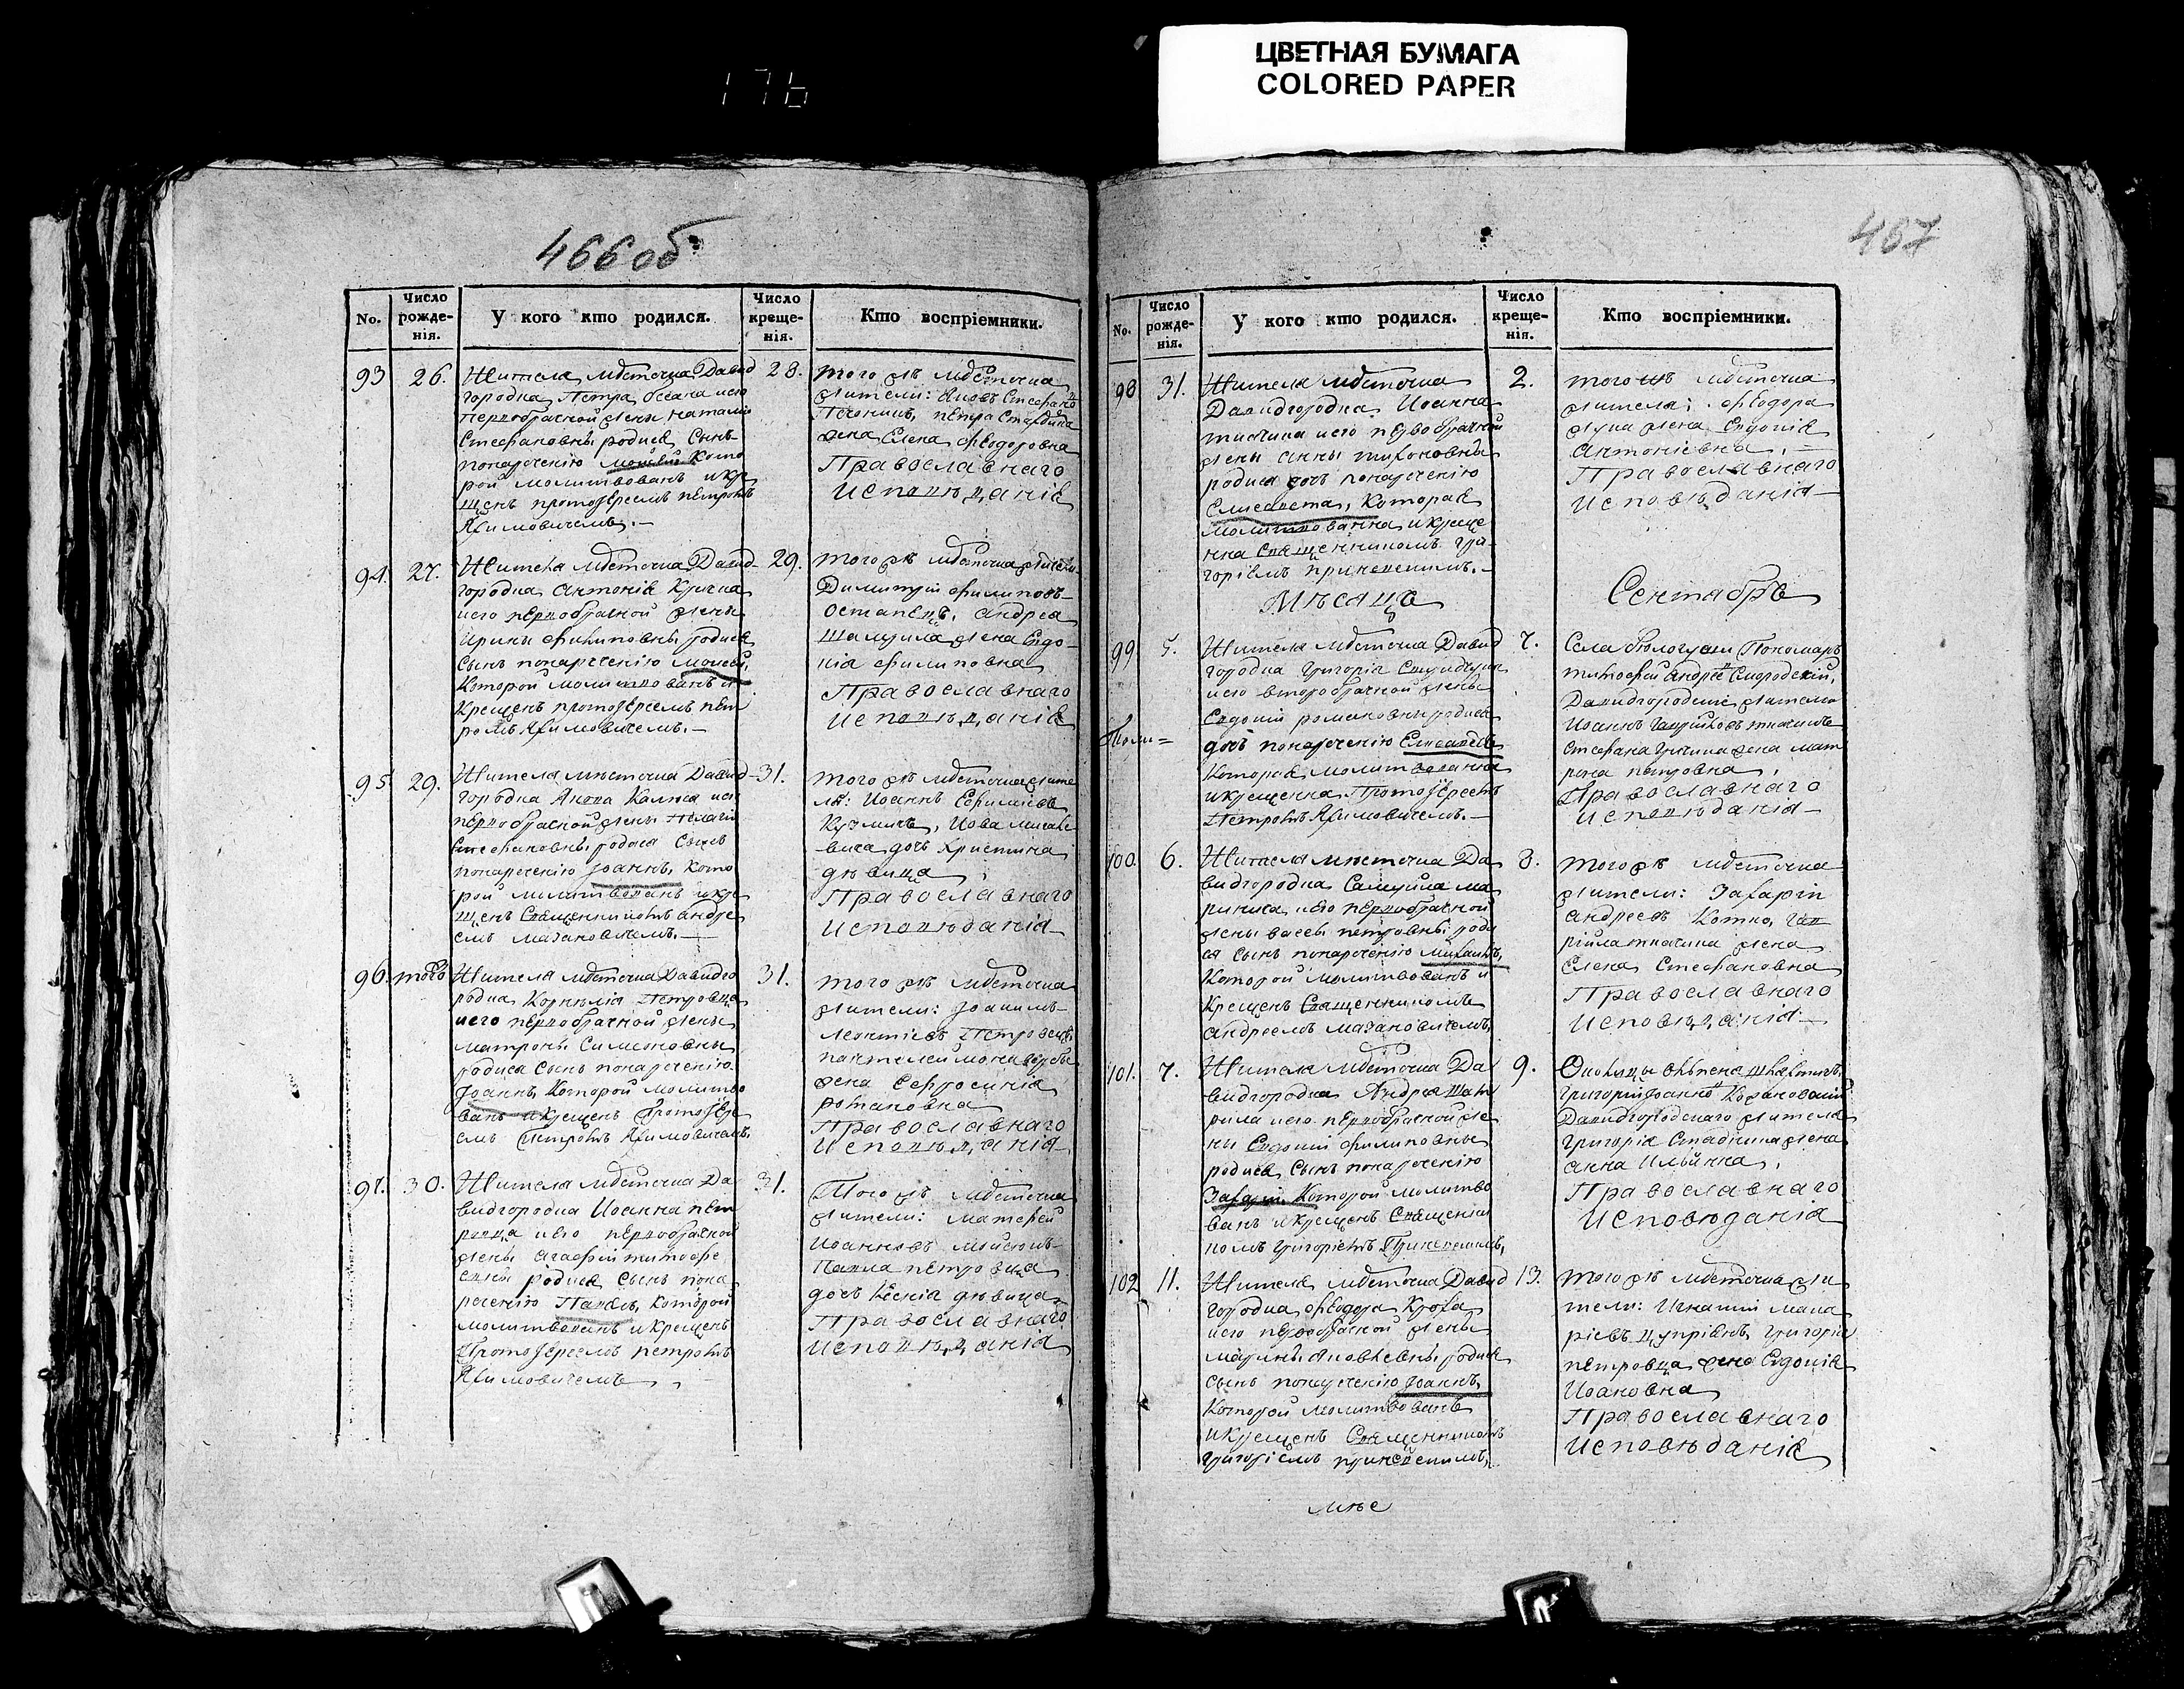 176
ЦВЕТНАЯ БУМАГА
COLORED PAPER
466 об
No.
Число рожде-нія.
У кого кто родился.
Число креще-нія.
Кто воспріемники.
93
26.
Жителя мѣсточка Давид
городка Петра
первобрачной жены наталіи
Стефановны родися Сынъ
понареченію Моисей Кото
рой молитвованъ икре
щенъ протоіереемъ петромъ
Якимовичемъ.-
28.
того жъ мѣсточка
жители: Яковъ Стефано
жена Елена Феодоровна
Православнаго
Исповѣданія
94.
27.
Жителя мѣсточка Давид-
городка Антонія
иего первобрачной жены
Ирины филиповны родися
Сынъ понареченію Моисей,
Которой молитвованъ и
Крещенъ протоіереемъ пет
ромъ Якимовичемъ.-
29.
того жъ мѣсточка жители
Димитрій филиповъ-
Остапецъ, андрея
жена Евдо-
кія филиповна
Православнаго
исповѣданія
95
29.
Жителя мѣсточка Давид-
городка Якова иего
первобрачной жены Пелагіи
Стефановны родися Сынъ
понареченію Іоаннъ, Кото
рой молитвованъ икре
щенъ Священникомъ андре
емъ мазановичемъ.-
31.
того жъ мѣсточка жите
ли: Иоаннъ Ефимовъ
Кузмичъ, Иова
дочь Христина
дѣвица
Православнаго
Исповѣданія
96.
того
Жителя мѣсточка Давидго
родка Корнилія Петровца
иего первобрачной жены
матроны Симеоновны
родися Сынъ понареченію
Іоаннъ, Которой молитво
ванъ икрещенъ Протоіере
емъ Петромъ Якимовичемъ.
31.
того жъ мѣсточка
жители: Іоакимъ
леонтіевъ Петровецъ,
пантелеймона
жена Ефросинія
романовна
Православнаго
Исповѣданія
97.
30.
Жителя мѣсточка Да
видгородка Иоанна пет
ровца иего первобрачной
жены агафіи тимофе
евны родися Сынъ пона
реченію Павелъ, Которой
молитвованъ икрещенъ
Протоіереемъ петромъ
Якимовичемъ
31.
Того жъ мѣсточка
жители: Матфей
Иоанновъ
Павла петровца
дочь Ксенія дѣвица
Православнаго
исповѣданія
467
No.
Число рожде-нія.
У кого кто родился.
Число креще-нія.
Кто воспріемники.
98
31.
Жителя мѣсточка
Давидгородка Иоанна
ткачика иего первобрачной
жены анны тихоновны
родися дочь понареченію
Елисавета, Которая
молитвованна икреще
нна Священникомъ гри-
горіемъ
2.
того жъ мѣсточка
жители: Феодора
жена Евдокія
антоніевна,-
Православнаго
Исповѣданія-
Мѣсяца
Сентабрь
99
5.
Жителя мѣсточка Давид
городка григорія
иего второбрачной жены
Евдокіи романовны родися
дочь понареченію Елисавета
Которая молитвованна
икрещенна Протоіереемъ
Петромъ Якимовичемъ.-
7.
Села Пономарь
тимофей андрее
Давидгородскіе жители
Иоаннъ ткачикъ
Стефана жена мат
рона петровна,
Православнаго
исповѣданія-
100.
6.
Жителя мѣсточка Да
видгородка Самуила ма
ринича иего первобрачной
жены петровны роди
ся сынъ понареченію Михаилъ,
Которой молитвованъ и
Крещенъ Священникомъ
андреемъ мазановичемъ,
8.
того жъ мѣсточка
жители: Захарій
андреевъ Котко, гав
рійла ткачика жена
Елена Стефановна
Православнаго
Исповѣданія-
101.
7.
Жителя мѣсточка Да
видгородка Андрея
иего первобрачной же
ны Евдокіи филиповны
родися Сынъ понареченію
Захарій, Которой молитво
ванъ икрещенъ Священни
комъ григоріемъ
9.
григорій
Давидгородскаго жителя
григорія жена
анна Ильична,
Православнаго
Исповѣданія
102
11.
Жителя мѣсточка Давид
городка феодора
иего первобрачной жены
марины яковлевны родися
сынъ понареченію Іоаннъ,
Которой молитвованъ
икрещенъ Священникомъ
григоріемъ
13.
того жъ мѣсточка жи
тели: Игнатій мака
ріевъ григорія
петровца жена Евдокія
Иоановна
Православнаго
исповѣданія
мѣс